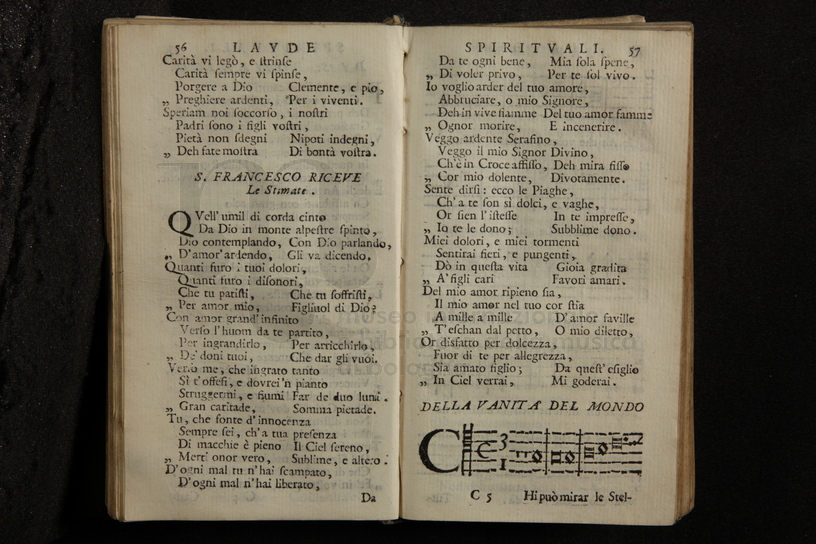 56 LAVDE
Carità vi legò, e ſtrinſe
Carità ſempre vi ſpinſe,
Porgere a Dio Clemente, e pio,
„ Preghiere ardenti, Per i viventi.
Speriam noi ſoccorſo, i noſtri
Padri ſono i figli voſtri,
Pietà non ſdegni Nipoti indegni,
„ Deh fate moſtra Di bontà voſtra.
S. FRANCESCO RICEVE
Le Stimate.
QVell' umil di corda cinto
Da Dio in monte alpeſtre ſpinto,
Dio contemplando, Con Dio parlando,
„ D'amor' ardendo, Gli va dicendo.
Quanti furo i tuoi dolori,
Quanti furo i diſonori,
Che tu patiſti, Che tu ſoffriſti,
„ Per amor mio, Figliuol di Dio?
Con amor grand' infinito
Verſo l'huom da te partito,
Per ingrandirlo, Per arricchirlo,
„ De' doni tuoi, Che dar gli vuoi.
Verſo me, che ingrato tanto
Sì t'offeſi, e dovrei 'n pianto
Struggermi, e fiumi Far de duo lumi.
„ Gran caritade, Somma pietade.
Tu, che fonte d'innocenza
Sempre ſei, ch'a tua preſenza
Di macchie è pieno Il Ciel ſereno,
„ Merti onor vero, Sublime, e altero.
D'ogni mal tu n'hai ſcampato,
D'ogni mal n'hai liberato,
Da
SPIRITVALI. 57
Da te ogni bene, Mia ſola ſpene,
„ Di voler privo, Per te ſol vivo.
Io voglio arder del tuo amore,
Abbruciare, o mio Signore,
Deh in vive fiamme Del tuo amor fammi
„ Ognor morire, E incenerire.
Veggo ardente Serafino,
Veggo il mio Signor Divino,
Ch'è in Croce affiſſo, Deh mira fiſſo
„ Cor mio dolente, Divotamente.
Sente dirſi: ecco le Piaghe,
Ch'a te ſon sì dolci, e vaghe,
Or ſien l'iſteſſe In te impreſſe,
„ Io te le dono; Subblime dono.
Miei dolori, e miei tormenti
Sentirai fieri, e pungenti,
Dò in queſta vita Gioia gradita
„ A' figli cari Favori amari.
Del mio amor ripieno ſia,
Il mio amor nel tuo cor ſtia
A mille a mille D'amor faville
„ T'eſchan dal petto, O mio diletto,
Or disfatto per dolcezza,
Fuor di te per allegrezza,
Sia amato figlio; Da queſt' eſiglio
„ In Ciel verrai, Mi goderai.
DELLA VANITA' DEL MONDO
C 5 Hi può mirar le Stel-